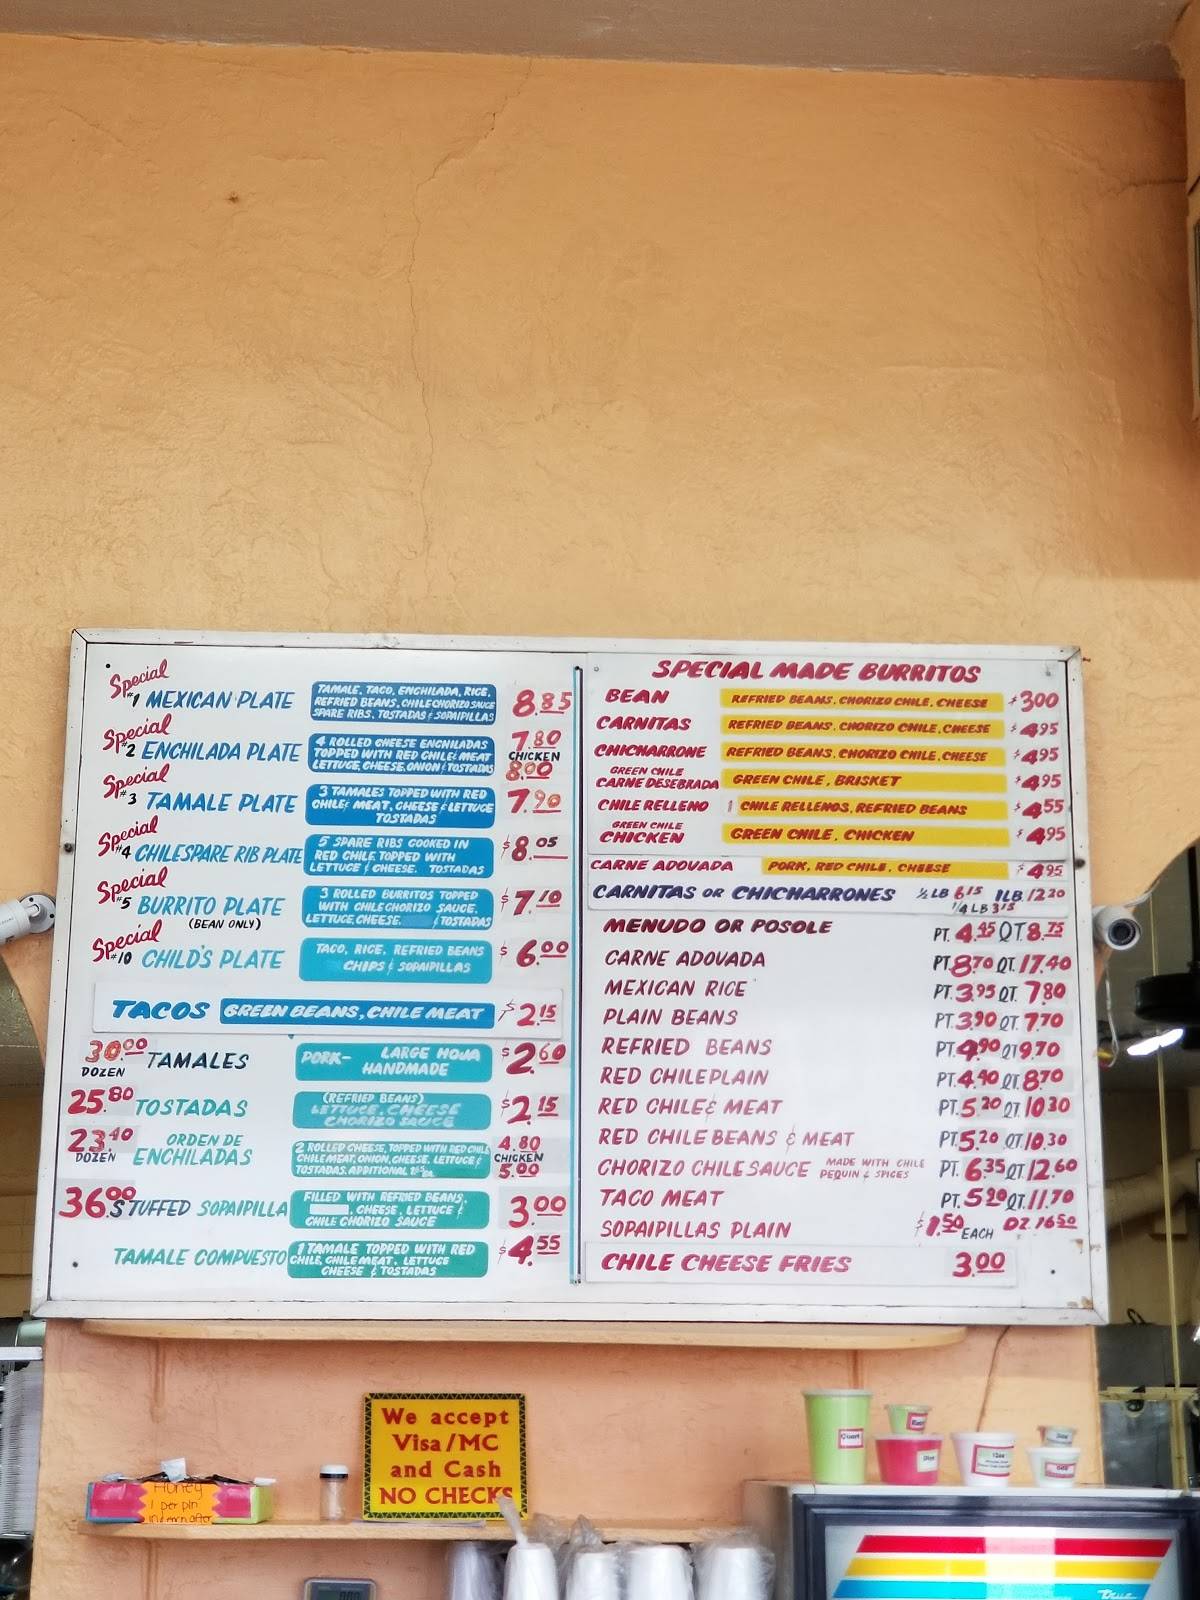 Special
#1 MEXICAN PLATE TAMALE, TACO, ENCHILADA, RICE, 8.85
REFRIED BEANS, CHILE CHORIZO SAUCE
SPARE RIBS, TOSTADAS & SOPAIPILLAS
Special
#2 ENCHILADA PLATE 4 ROLLED CHEESE ENCHILADAS 7.80
TOPPED WITH RED CHILE & MEAT CHICKEN
LETTUCE, CHEESE, ONION & TOSTADAS 8.00
Special
#3 TAMALE PLATE 3 TAMALES TOPPED WITH RED 7.90
CHILE & MEAT, CHEESE & LETTUCE
TOSTADAS
Special
#4 CHILE SPARE RIB PLATE 5 SPARE RIBS COOKED IN $8.05
RED CHILE TOPPED WITH
LETTUCE & CHEESE. TOSTADAS
Special
#5 BURRITO PLATE 3 ROLLED BURRITOS TOPPED $7.10
(BEAN ONLY) WITH CHILE CHORIZO SAUCE,
LETTUCE, CHEESE. & TOSTADAS
Special
#10 CHILD'S PLATE TACO, RICE, REFRIED BEANS $6.00
CHIPS & SOPAIPILLAS
TACOS GREEN BEANS, CHILE MEAT $2.15
30.00 DOZEN TAMALES PORK- LARGE HOJA $2.60
HANDMADE
25.80 TOSTADAS (REFRIED BEANS) $2.15
LETTUCE, CHEESE
CHORIZO SAUCE
23.40 DOZEN ORDEN DE 2 ROLLED CHEESE, TOPPED WITH RED CHILE 4.80
ENCHILADAS CHILE MEAT, ONION, CHEESE, LETTUCE & CHICKEN
TOSTADAS, ADDITIONAL 5.00
36.00 STUFFED SOPAIPILLA FILLED WITH REFRIED BEANS, 3.00
, CHEESE, LETTUCE &
CHILE CHORIZO SAUCE
TAMALE COMPUESTO 1 TAMALE TOPPED WITH RED $4.55
CHILE, CHILE MEAT, LETTUCE
CHEESE & TOSTADAS
SPECIAL MADE BURRITOS
BEAN REFRIED BEANS, CHORIZO CHILE, CHEESE $3.00
CARNITAS REFRIED BEANS, CHORIZO CHILE, CHEESE $4.95
CHICHARRONE REFRIED BEANS, CHORIZO CHILE, CHEESE $4.95
GREEN CHILE
CARNE DESEBRADA GREEN CHILE, BRISKET $4.95
CHILE RELLENO 1 CHILE RELLENOS, REFRIED BEANS $4.55
GREEN CHILE
CHICKEN GREEN CHILE, CHICKEN $4.95
CARNE ADOVADA PORK, RED CHILE, CHEESE $4.95
CARNITAS OR CHICHARRONES ½ LB 6.15 1LB. 12.20
1/4 LB 3.15
MENUDO OR POSOLE PT. 4.45 QT 8.75
CARNE ADOVADA PT 8.70 QT. 17.40
MEXICAN RICE PT. 3.95 QT. 7.80
PLAIN BEANS PT. 3.90 QT. 7.70
REFRIED BEANS PT. 4.90 QT 9.70
RED CHILE PLAIN PT. 4.40 QT. 8.70
RED CHILE & MEAT PT. 5.20 QT. 10.30
RED CHILE BEANS & MEAT PT. 5.20 QT. 10.30
CHORIZO CHILE SAUCE MADE WITH CHILE PEQUIN & SPICES PT. 6.35 QT. 12.60
TACO MEAT PT. 5.90 QT. 11.70
SOPAIPILLAS PLAIN $1.50 EACH DZ. 16.50
CHILE CHEESE FRIES 3.00
We accept
Visa/MC
and Cash
NO CHECKS
Honey
1 per pin
Quart
Pint
12oz
True